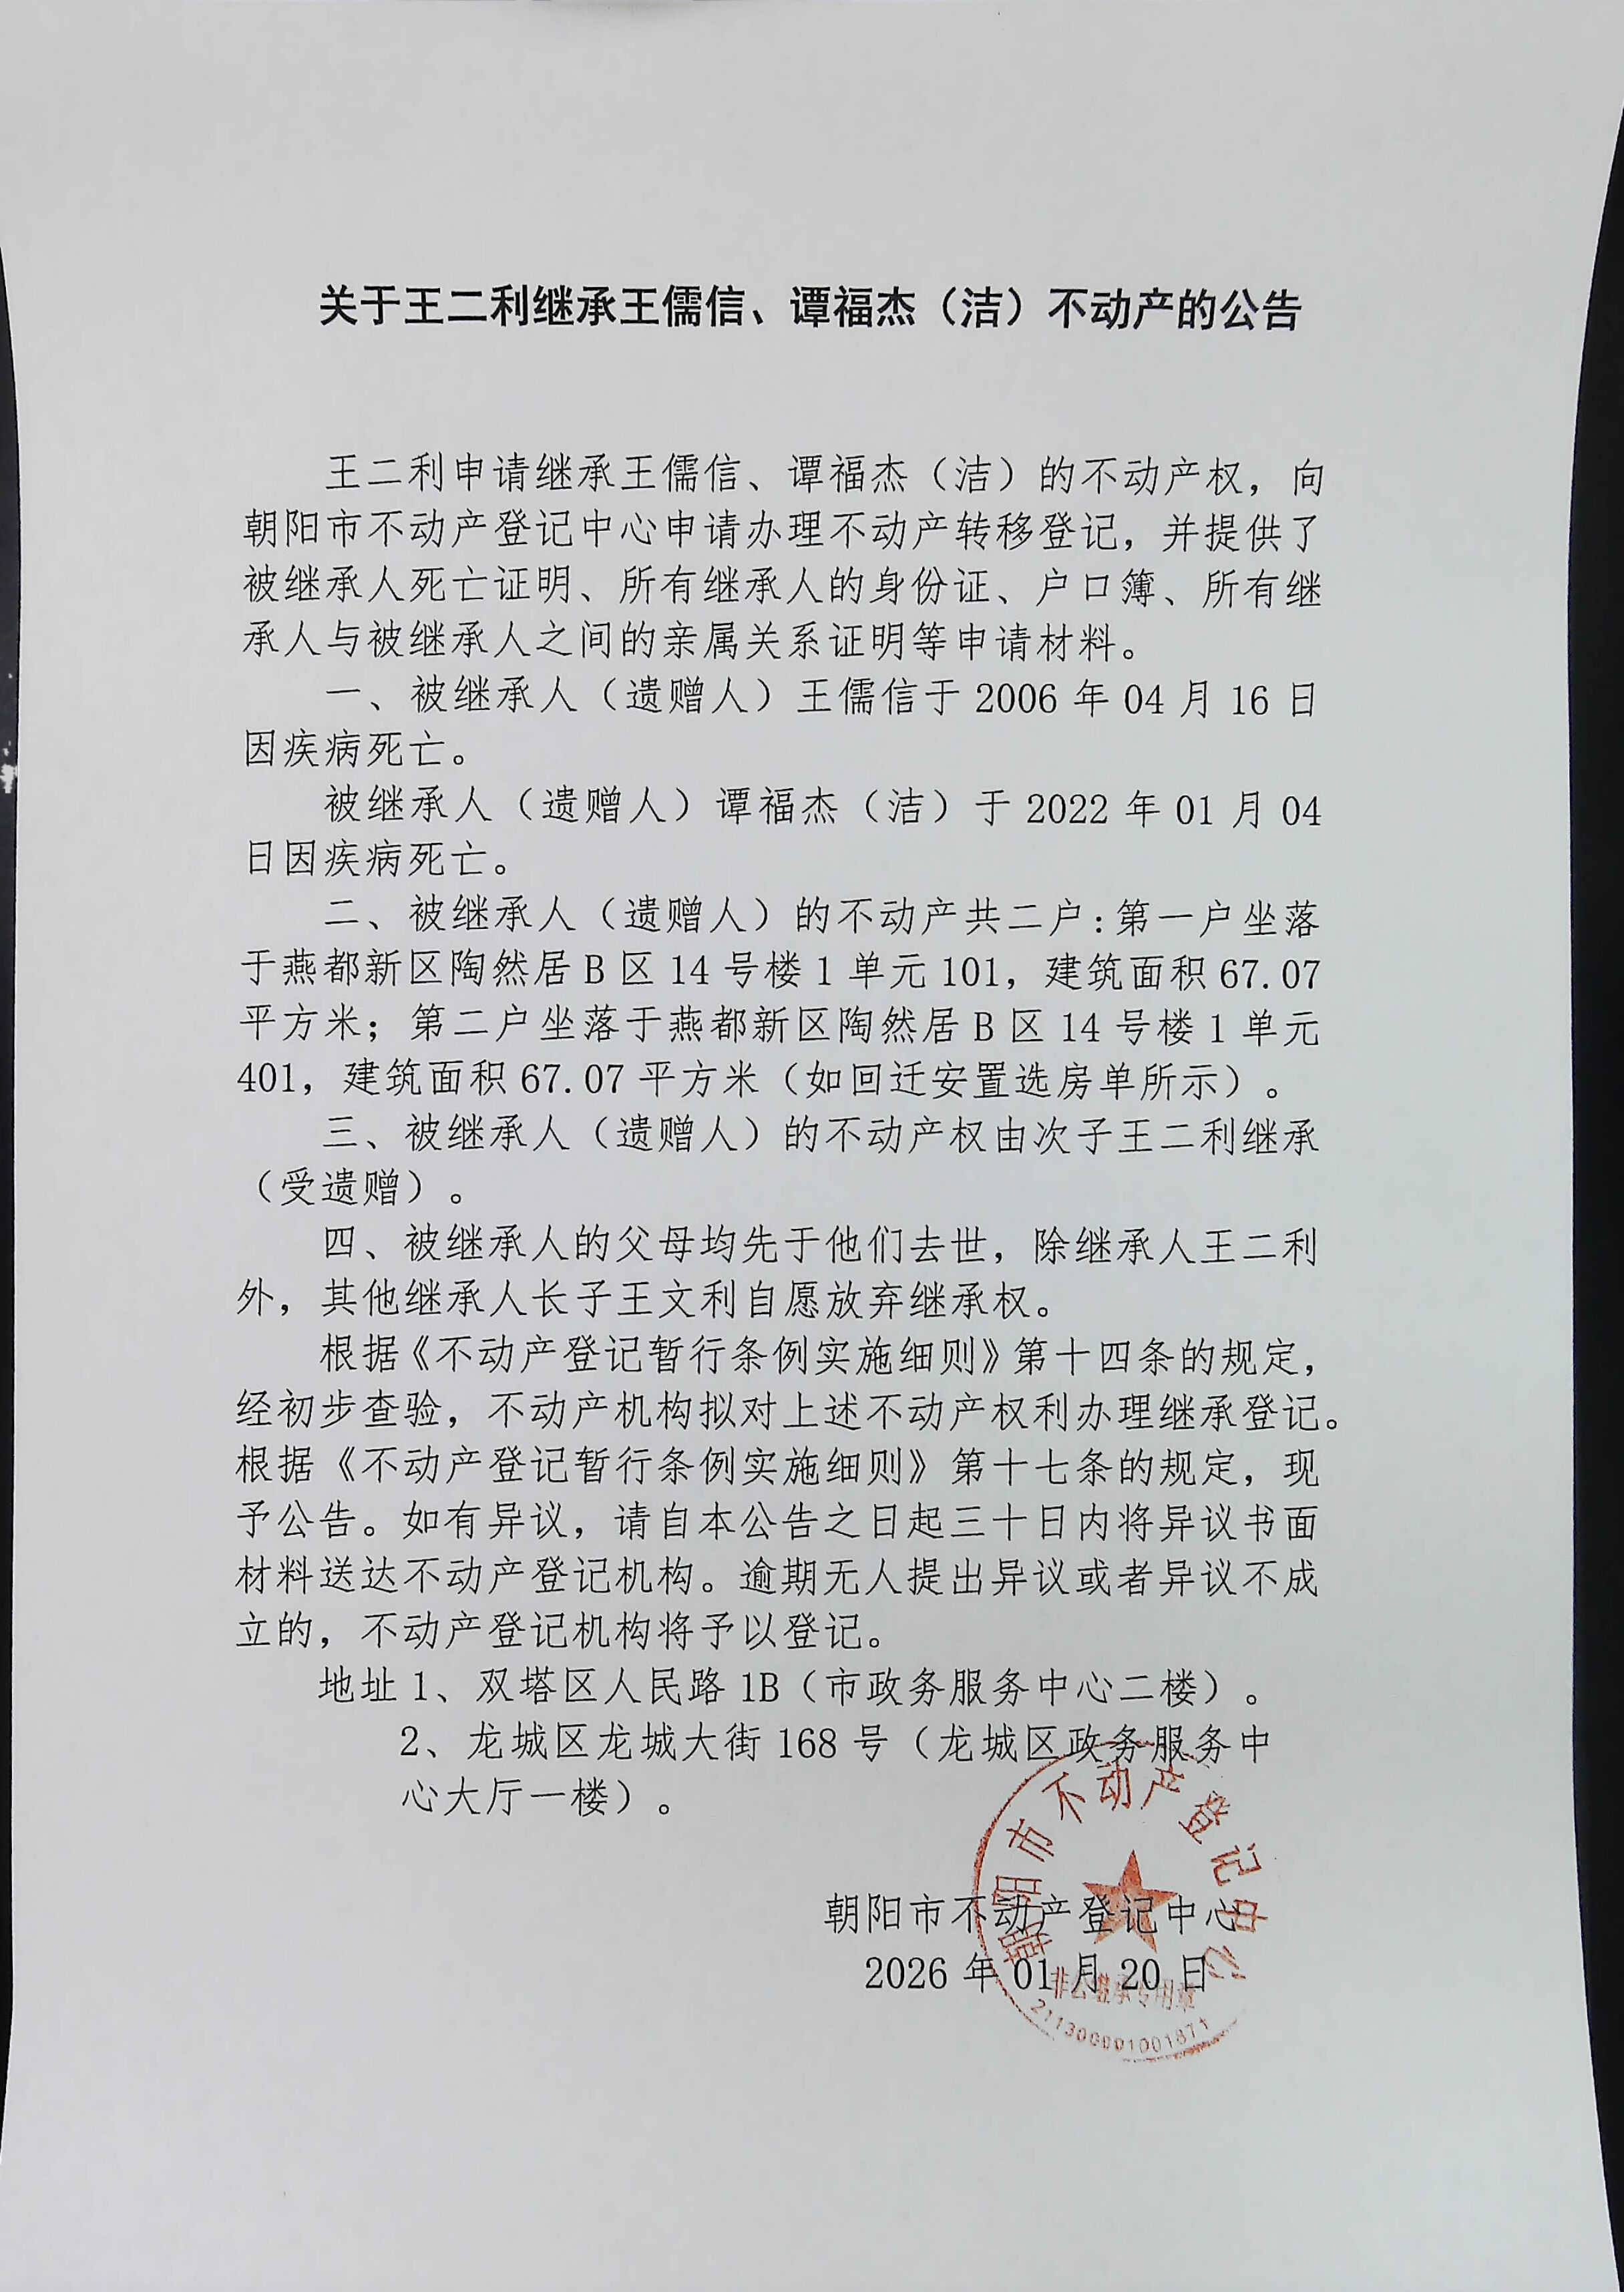 关于王二利继承王儒信、谭福杰（洁）不动产的公告
王二利申请继承王儒信、谭福杰（洁）的不动产权，向
朝阳市不动产登记中心申请办理不动产转移登记，并提供了
被继承人死亡证明、所有继承人的身份证、户口簿、所有继
承人与被继承人之间的亲属关系证明等申请材料。
一、被继承人（遗赠人）王儒信于 2006 年 04 月 16 日
因疾病死亡。
被继承人（遗赠人）谭福杰（洁）于 2022 年 01 月 04
日因疾病死亡。
二、被继承人（遗赠人）的不动产共二户：第一户坐落
于燕都新区陶然居 B 区 14 号楼 1 单元 101，建筑面积 67.07
平方米；第二户坐落于燕都新区陶然居 B 区 14 号楼 1 单元
401，建筑面积 67.07 平方米（如回迁安置选房单所示）。
三、被继承人（遗赠人）的不动产权由次子王二利继承
（受遗赠）。
四、被继承人的父母均先于他们去世，除继承人王二利
外，其他继承人长子王文利自愿放弃继承权。
根据《不动产登记暂行条例实施细则》第十四条的规定，
经初步查验，不动产机构拟对上述不动产权利办理继承登记。
根据《不动产登记暂行条例实施细则》第十七条的规定，现
予公告。如有异议，请自本公告之日起三十日内将异议书面
材料送达不动产登记机构。逾期无人提出异议或者异议不成
立的，不动产登记机构将予以登记。
地址 1、双塔区人民路 1B（市政务服务中心二楼）。
2、龙城区龙城大街 168 号（龙城区政务服务中
心大厅一楼）。
朝阳市不动产登记中心
2026 年 01 月 20 日
朝阳市不动产登记中心
非公继承专用章